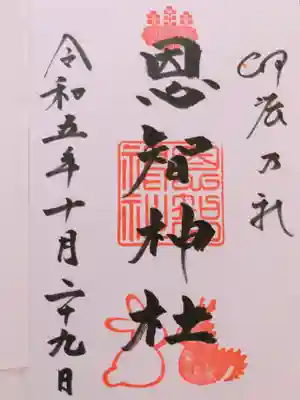 卯辰乃礼
恩智神社
令和五年十月二十九日